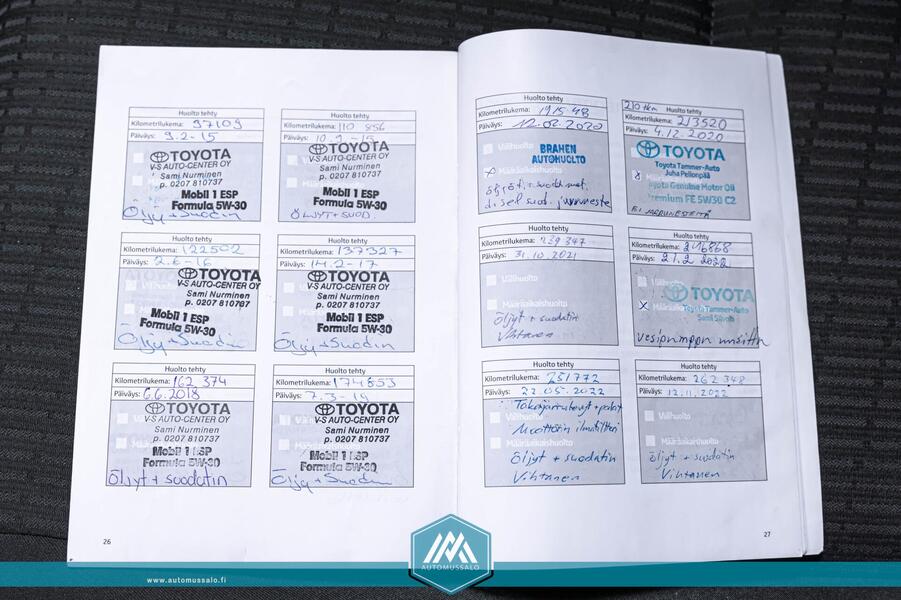 Huolto tehty
Kilometrilukema: 97109
Päiväys: 9.2-15
TOYOTA
V-S AUTO-CENTER OY
Sami Nurminen
p. 0207 810737
Mobil 1 ESP
Formula 5W-30
Öljy + Suodin
Huolto tehty
Kilometrilukema: 110 856
Päiväys: 10.9-15
TOYOTA
V-S AUTO-CENTER OY
Sami Nurminen
p. 0207 810737
Mobil 1 ESP
Formula 5W-30
ÖLJYT+SUOD.
Huolto tehty
Kilometrilukema: 122502
Päiväys: 2.6-16
TOYOTA
V-S AUTO-CENTER OY
Sami Nurminen
p. 0207 810737
Mobil 1 ESP
Formula 5W-30
Öljy + Suodin
Huolto tehty
Kilometrilukema: 137327
Päiväys: 14.2-17
TOYOTA
V-S AUTO-CENTER OY
Sami Nurminen
p. 0207 810737
Mobil 1 ESP
Formula 5W-30
Öljy + Suodin
Huolto tehty
Kilometrilukema: 162 374
Päiväys: 6.6.2018
TOYOTA
V-S AUTO-CENTER OY
Sami Nurminen
p. 0207 810737
Mobil 1 ESP
Formula 5W-30
Öljyt + suodatin
Huolto tehty
Kilometrilukema: 174853
Päiväys: 7.3-19
TOYOTA
V-S AUTO-CENTER OY
Sami Nurminen
p. 0207 810737
Mobil 1 ESP
Formula 5W-30
Öljy + Suodin
26
Huolto tehty
Kilometrilukema:
Päiväys: 12.02.2020
Välihuolto
BRAHEN
AUTOHUOLTO
Määräaikaishuolto
210 tkm
Huolto tehty
Kilometrilukema: 213520
Päiväys: 4.12.2020
TOYOTA
Toyota Tammer-Auto
Juha Pellonpää
Toyota Genuine Motor Oil
Premium FE 5W30 C2
Huolto tehty
Kilometrilukema: 239 347
Päiväys: 31.10.2021
Välihuolto
Määräaikaishuolto
Öljyt + suodatin
Vihtanen
Huolto tehty
Kilometrilukema: 246868
Päiväys: 21.2 2022
TOYOTA
Toyota Tammer-Auto
vesipumpun
Huolto tehty
Kilometrilukema: 251772
Päiväys: 22.05.2022
Välihuolto
Moottorin
Määräaikaishuolto
Öljyt + suodatin
Vihtanen
Huolto tehty
Kilometrilukema: 262 348
Päiväys: 12.11.2022
Välihuolto
Määräaikaishuolto
Öljyt + suodatin
Vihtanen
27
www.automussalo.fi
AUTOMUSSALO